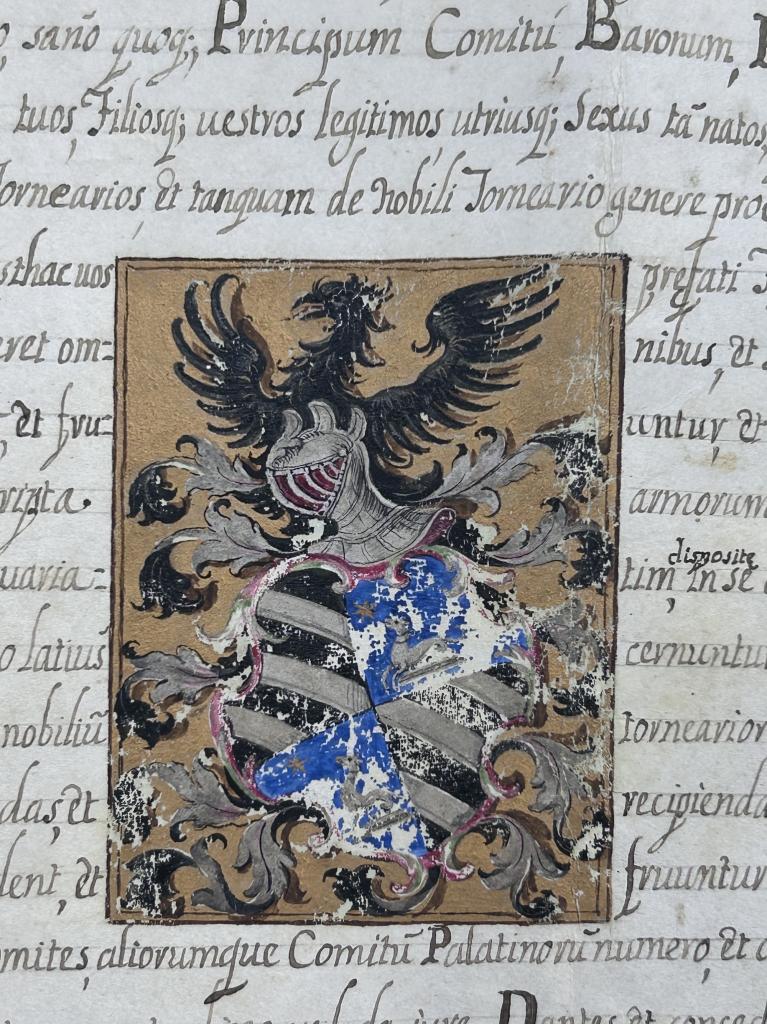 sano quoq; Principum Comitũ, Baronum,
tuos, Filiosq; uestros legitimos, utriusq; Sexus tã natos,
Tornearios, et tanquam de Nobili Torneario genere
sthac uos prefati
eret om= nibus, et
, et fru= untur, et
armorum
uaria= disposite
tim, in se
o latius cernuntur
nobiliũ torneariorum
das, et recipienda
dent, et fruuntur
mites, aliorumque Comitũ Palatinorũ numero, et
de iure Dantes et